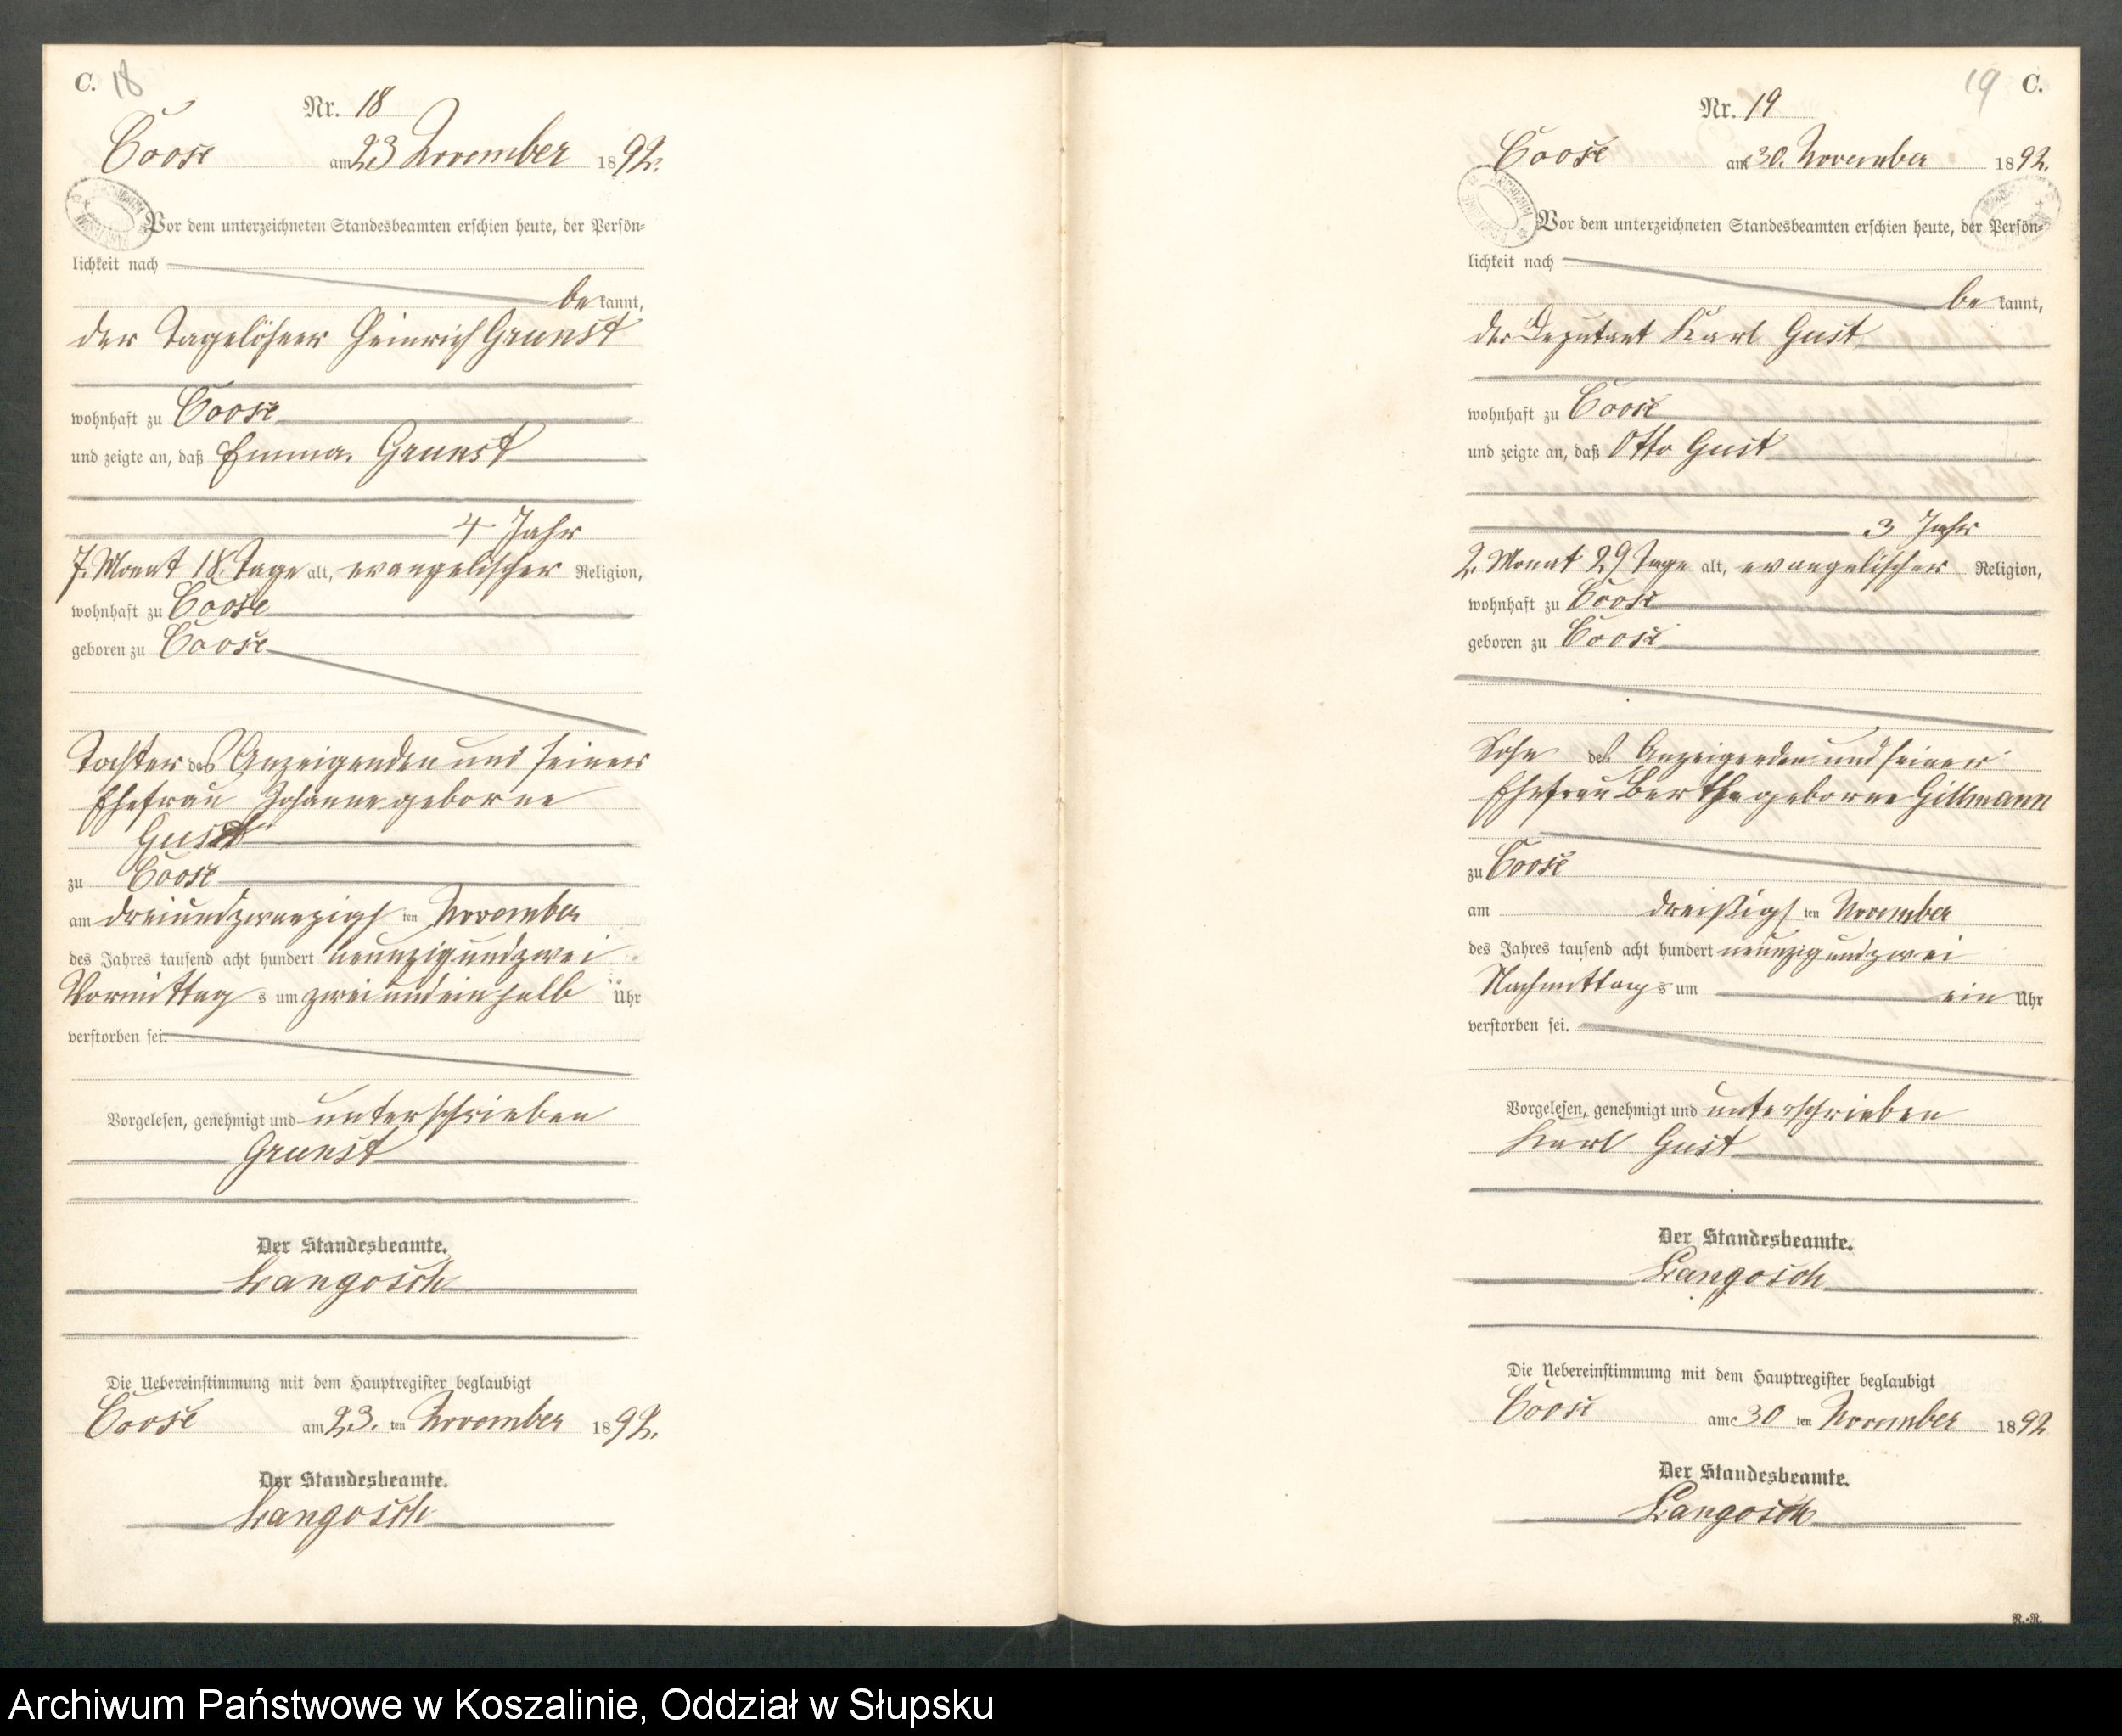 C. 18
Nr. 18
Coose am 23 November 1892.
Vor dem unterzeichneten Standesbeamten erschien heute, der Persön-
lichkeit nach
be kannt,
der Tagelöhner Heinrich Grunst
wohnhaft zu Coose
und zeigte an, daß Emma Grunst
4 Jahr
7 Monat 18 Tage alt, evangelischer Religion,
wohnhaft zu Coose
geboren zu Coose
Tochter des Anzeigenden und seiner
Ehefrau Johanne geborne
Gust
zu Coose
am dreiundzwanzigs ten November
des Jahres tausend acht hundert neunzig und zwei
Vormittag s um zwei und ein halb Uhr
verstorben sei.
Vorgelesen, genehmigt und unterschrieben
Grunst
Der Standesbeamte.
Langosch
Die Uebereinstimmung mit dem Hauptregister beglaubigt
Coose am 23. ten November 1892.
Der Standesbeamte.
Langosch
19 C.
Nr. 19
Coose am 30. November 1892.
Vor dem unterzeichneten Standesbeamten erschien heute, der Persön-
lichkeit nach
be kannt,
der Deputant Karl Gust
wohnhaft zu Coose
und zeigte an, daß Otto Gust
3 Jahr
2. Monat 29 Tage alt, evangelischer Religion,
wohnhaft zu Coose
geboren zu Coose
Sohn des Anzeigenden und seiner
Ehefrau Berthe geborne Gillmann
zu Coose
am dreißigs ten November
des Jahres tausend acht hundert neunzig und zwei
Nachmittag s um ein Uhr
verstorben sei.
Vorgelesen, genehmigt und unterschrieben
Karl Gust
Der Standesbeamte.
Langosch
Die Uebereinstimmung mit dem Hauptregister beglaubigt
Coose am 30 ten November 1892
Der Standesbeamte.
Langosch
R.-R.
Archiwum Państwowe w Koszalinie, Oddział w Słupsku